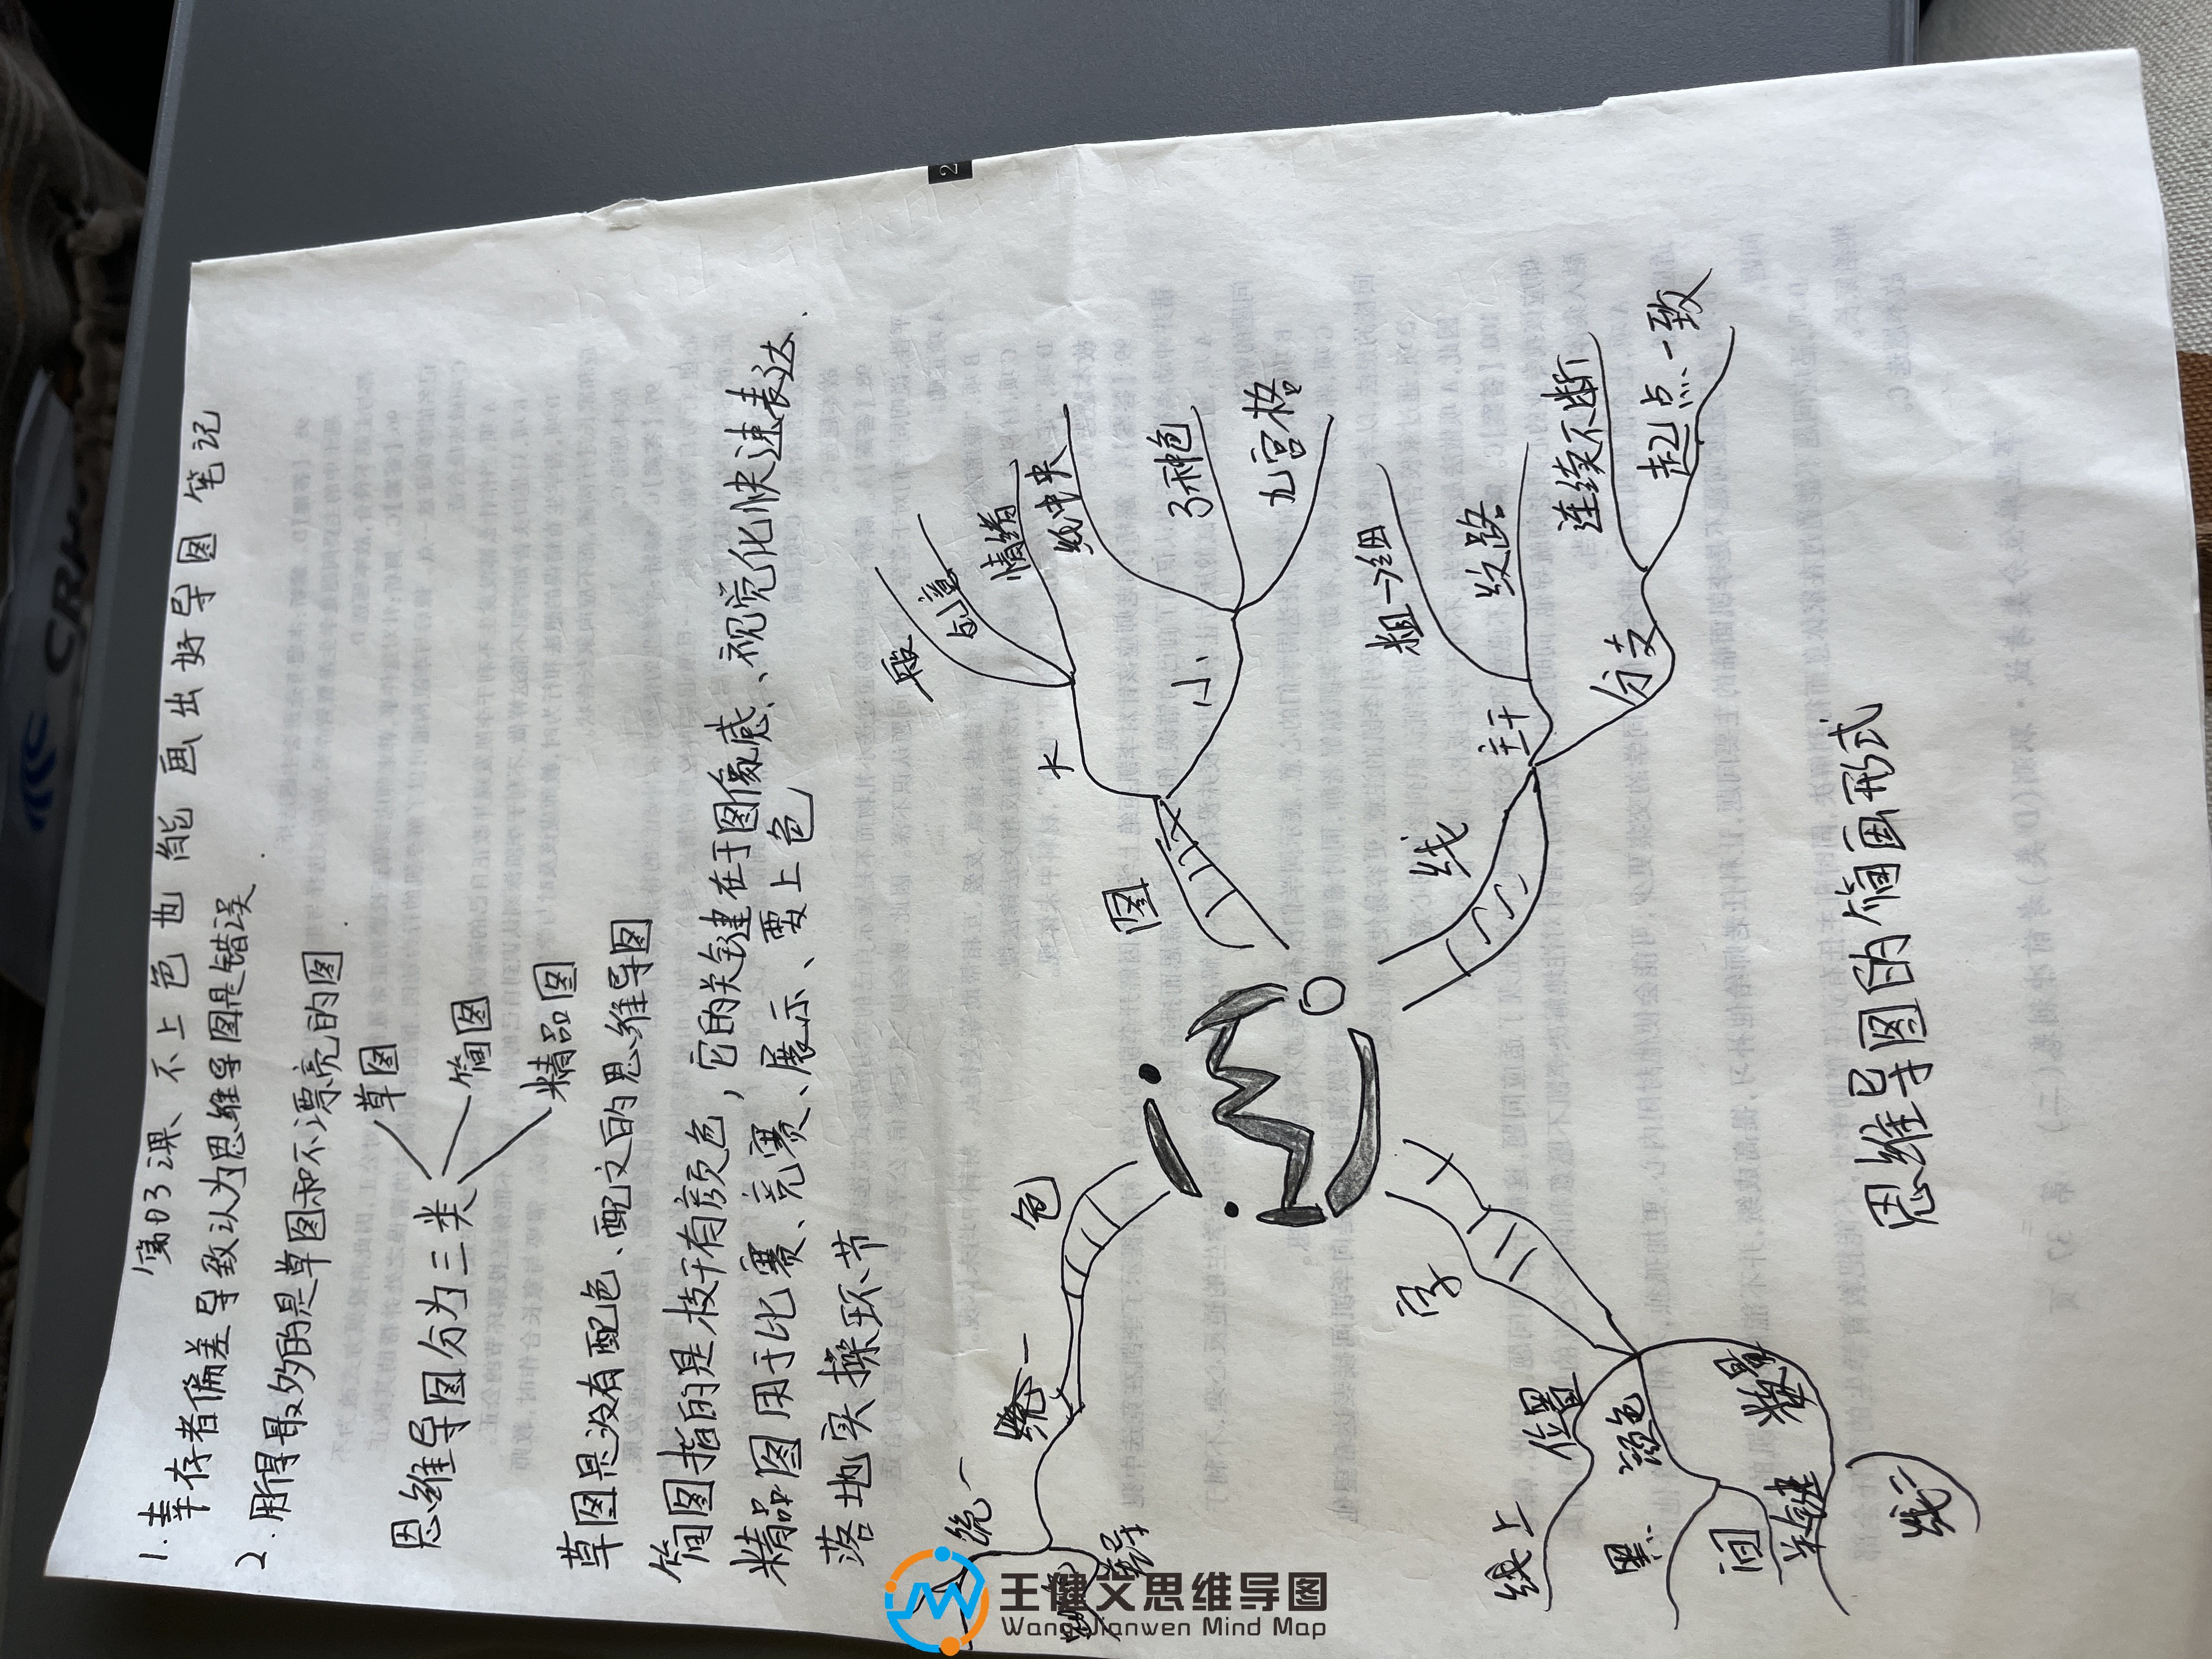 第03课、不上色也能画出好导图笔记
1.幸存者偏差导致认为思维导图是错误
2.用得最多的是草图和不漂亮的图
思维导图分为三类
草图
简图
精品图
草图是没有配色、配文的思维导图
简图指的是枝干有颜色，它的关键在于图像感、视觉化快速表达.
精品图用于比赛、竞赛、展示、要上色
落地实操环节
图
大
创意
情绪
小
3种色
九宫格
线
主干
粗→细
纹路
分支
连续不断
起点一致
字
位置
线上
颜色
黑
数量
词
关键
线
色
统一
统一
思维导图的简画形式
2
王健文思维导图
Wang Jianwen Mind Map
CRH